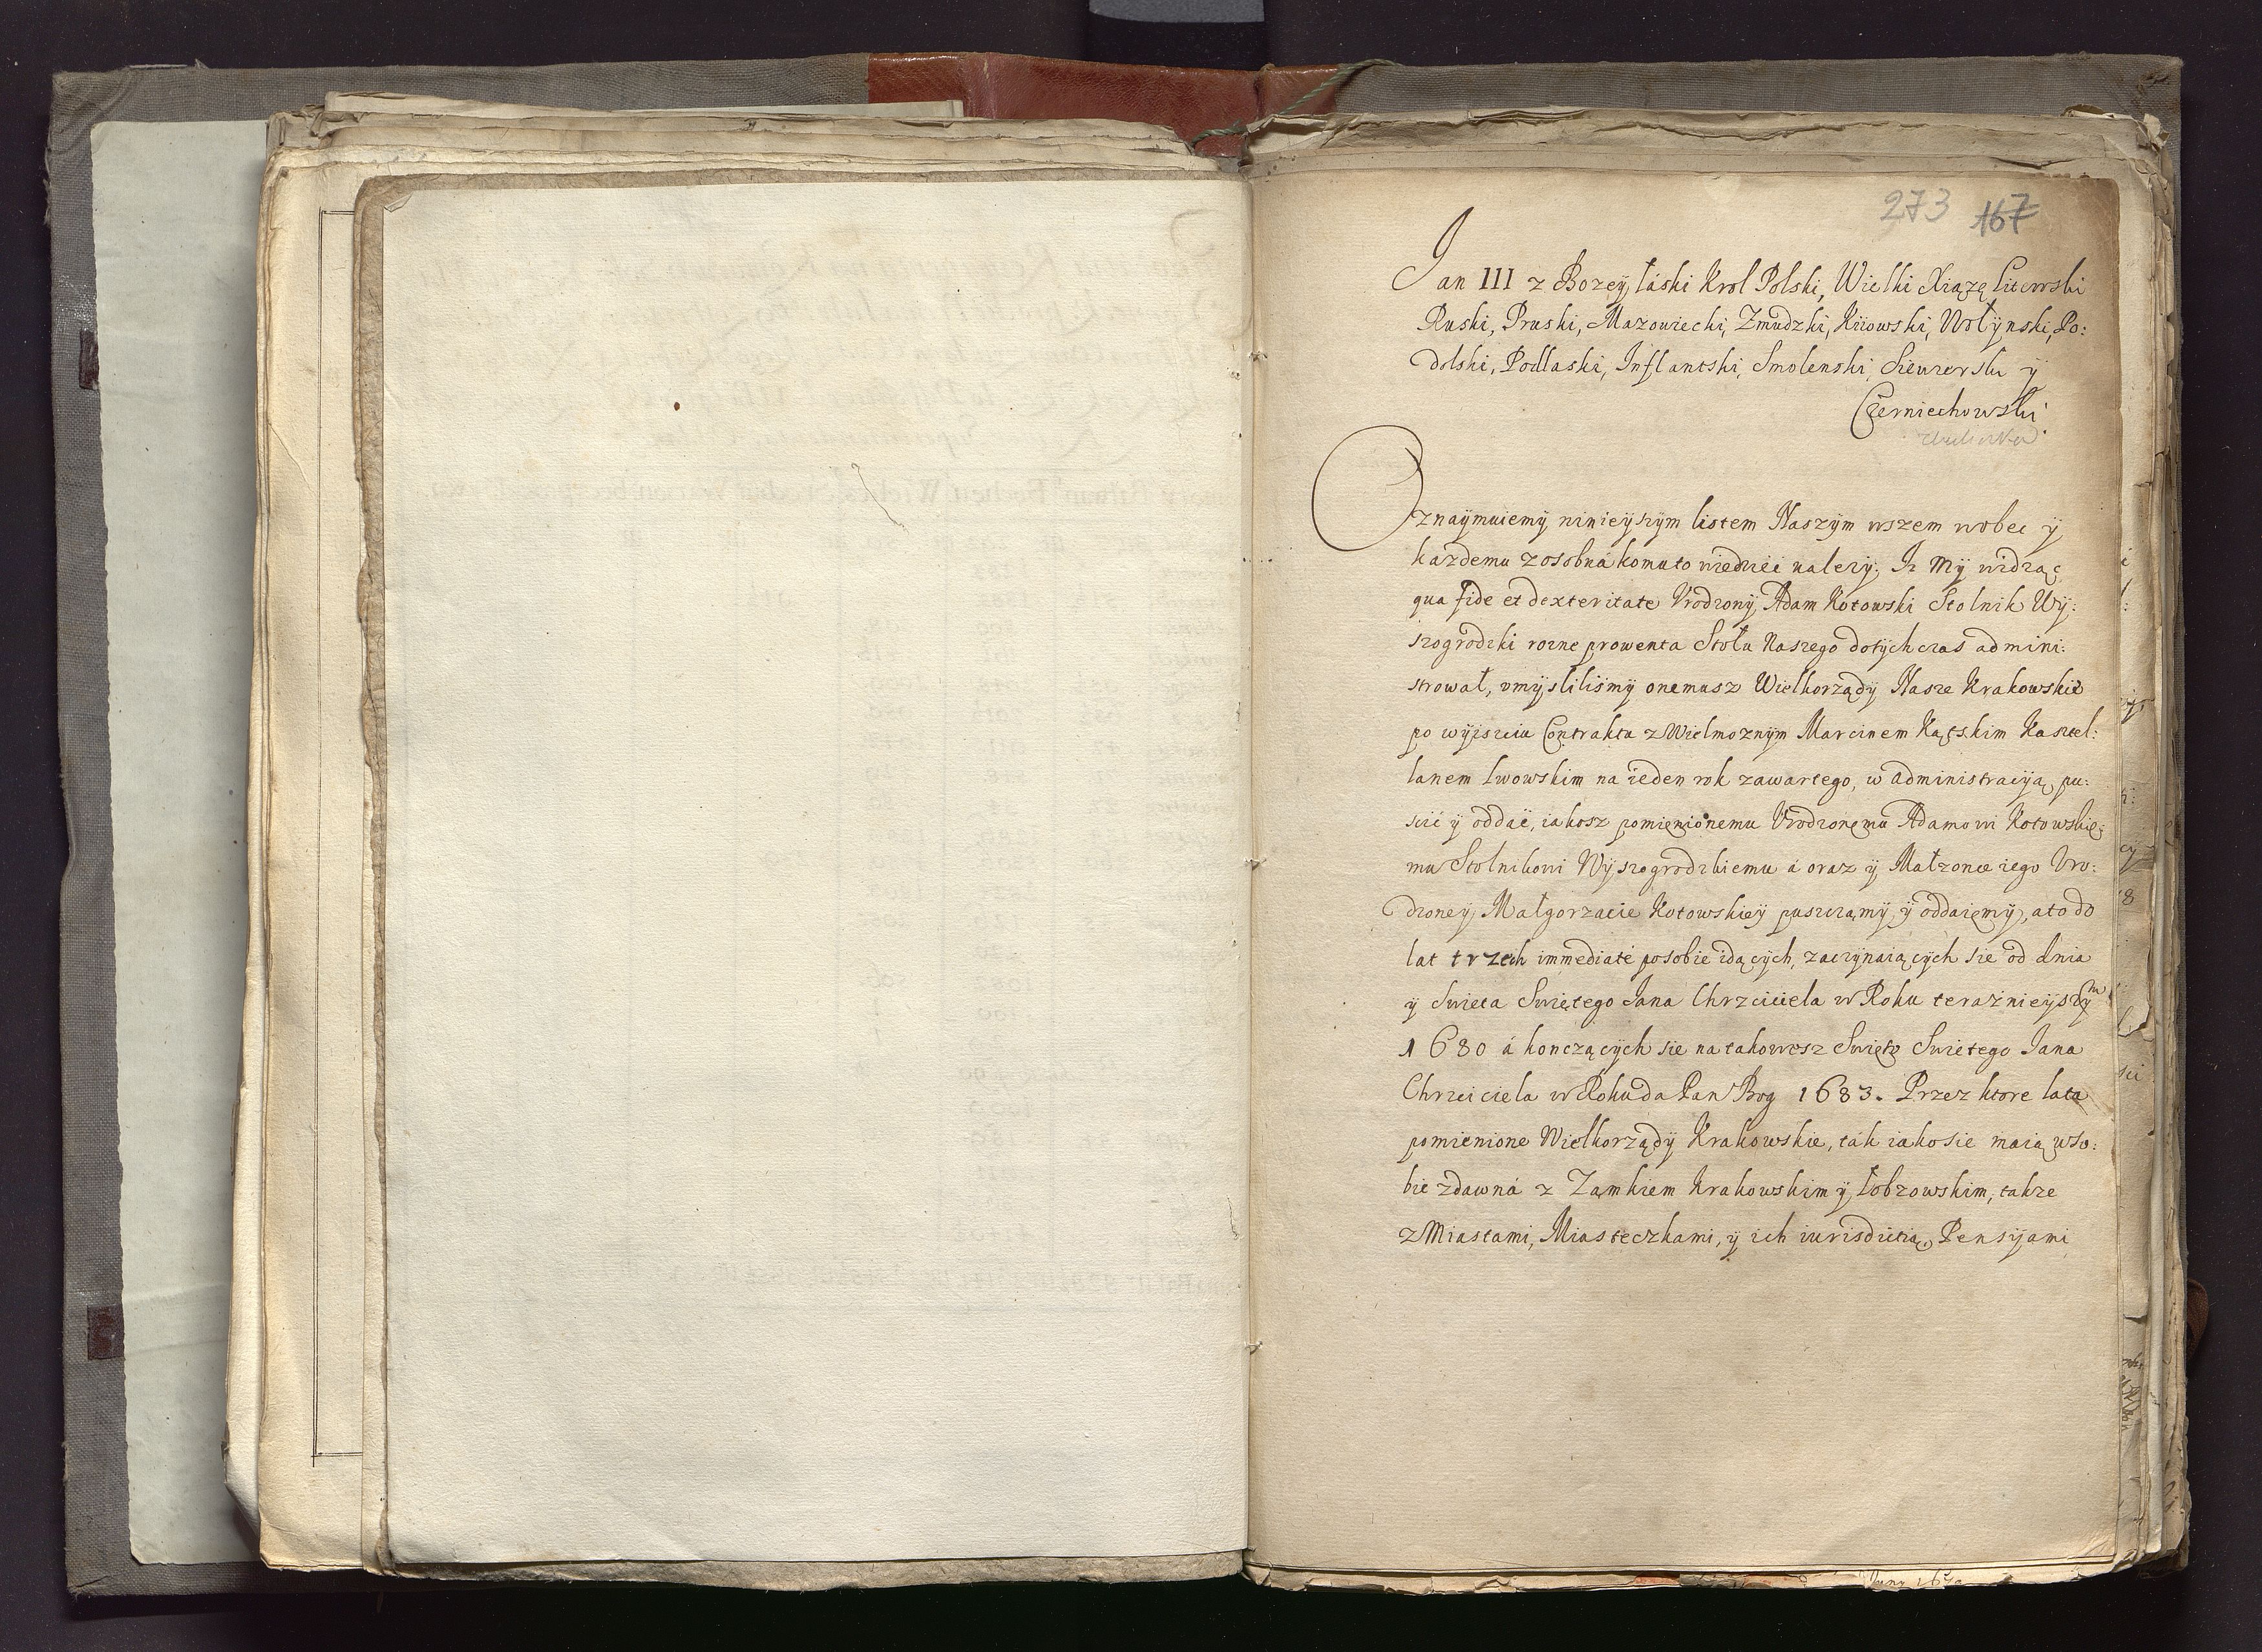 273 167
Jan III z Bozey łáski Krol Polski, Wielki Xiązę Litewski
Ruski, Pruski, Mazowiecki, Zmudzki, Kiiowski, Wołÿnski, Po:
dolski, Podlaski, Inflantski, Smolenski, Siewierski ÿ
Czerniechowski.
Oznaÿmuiemÿ ninieÿszÿm listem Naszÿm wszem wobec ÿ
kazdemu zosobná komuto wiedziéć nalezÿ; Iz Mÿ widząc
qua fide et dexteritate Vrodzonÿ Adam Kotowski Stolnik Wÿ:
szogrodzki rozne prowenta Stołu Naszego dotÿchczas admini:
strował, vmÿslilismÿ onemusz Wielkorządÿ Nasze Krakowskie
po wÿiszciu Contraktu z Wielmoznÿm Marcinem Kątskim Kasztel:
lanem Lwowskim na ieden rok zawartego, w administracÿią pu:
scić ÿ oddać, iakosz pomienionemu Vrodzonemu Adamowi Kotowskie:
mu Stolnikowi Wÿszogrodzkiemu á oraz ÿ Małzonce iego Vro:
dzoneÿ Małgorzacie Kotowskieÿ puszczamÿ, ÿ oddaiemÿ, a to do
lat trzech immediate posobie idącÿch, zaczÿnaiącÿch sie od dnia
ÿ Swieta Swiętego Jana Chrzciciela w Roku teráznieÿszÿm
1680 á konczącÿch sie na takowesz Swięto Swietego Jana
Chrzciciela w Roku da Pan Bog 1683. Przez ktore lata
pomienione Wielkorządÿ Krakowskie, ták iako sie maią wso:
bie zdawná z Zamkiem Krakowskim ÿ Łobzowskim, takze
z Miastami, Miasteczkami, ÿ ich iurisdictią, Pensÿami